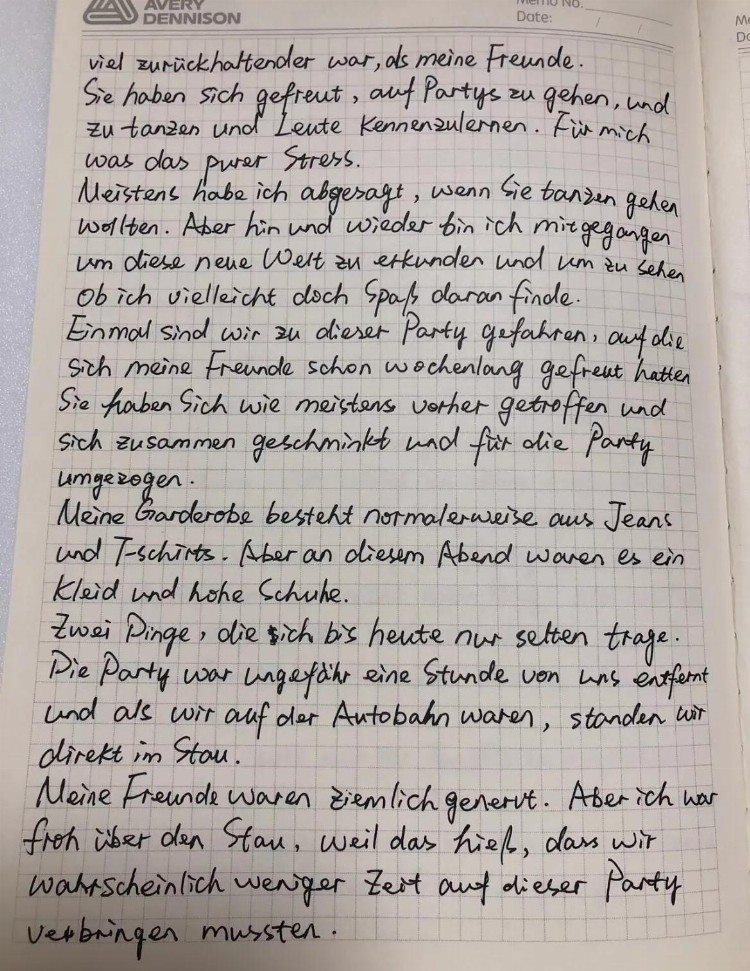 AVERY
DENNISON
Memo No.
Date: / /
viel zurückhaltender war, als meine Freunde.
Sie haben sich gefreut, auf Partys zu gehen, und
zu tanzen und Leute kennenzulernen. Für mich
was das purer Stress.
Meistens habe ich abgesagt, wenn Sie tanzen gehen
wollten. Aber hin und wieder bin ich mitgegangen
um diese neue Welt zu erkunden und um zu sehen
Ob ich vielleicht doch Spaß daran finde.
Einmal sind wir zu dieser Party gefahren, auf die
sich meine Freunde schon wochenlang gefreut hatten
Sie haben Sich wie meistens vorher getroffen und
sich zusammen geschminkt und für die Party
umgezogen.
Meine Garderobe besteht normalerweise aus Jeans
und T-schirts. Aber an diesem Abend waren es ein
Kleid und hohe Schuhe.
Zwei Dinge, die sich bis heute nur selten trage.
Die Party war ungefähr eine Stunde von uns entfernt
und als wir auf der Autobahn waren, standen wir
direkt im Stau.
Meine Freunde waren ziemlich genervt. Aber ich war
froh über den Stau, weil das hieß, dass wir
wahrscheinlich weniger Zeit auf dieser Party
verbringen mussten.